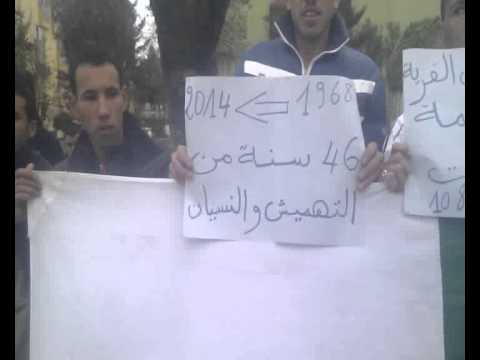 1968 ⇐ 2014
46 سنة من
التهميش والنسيان
القرية
مة
ت
108